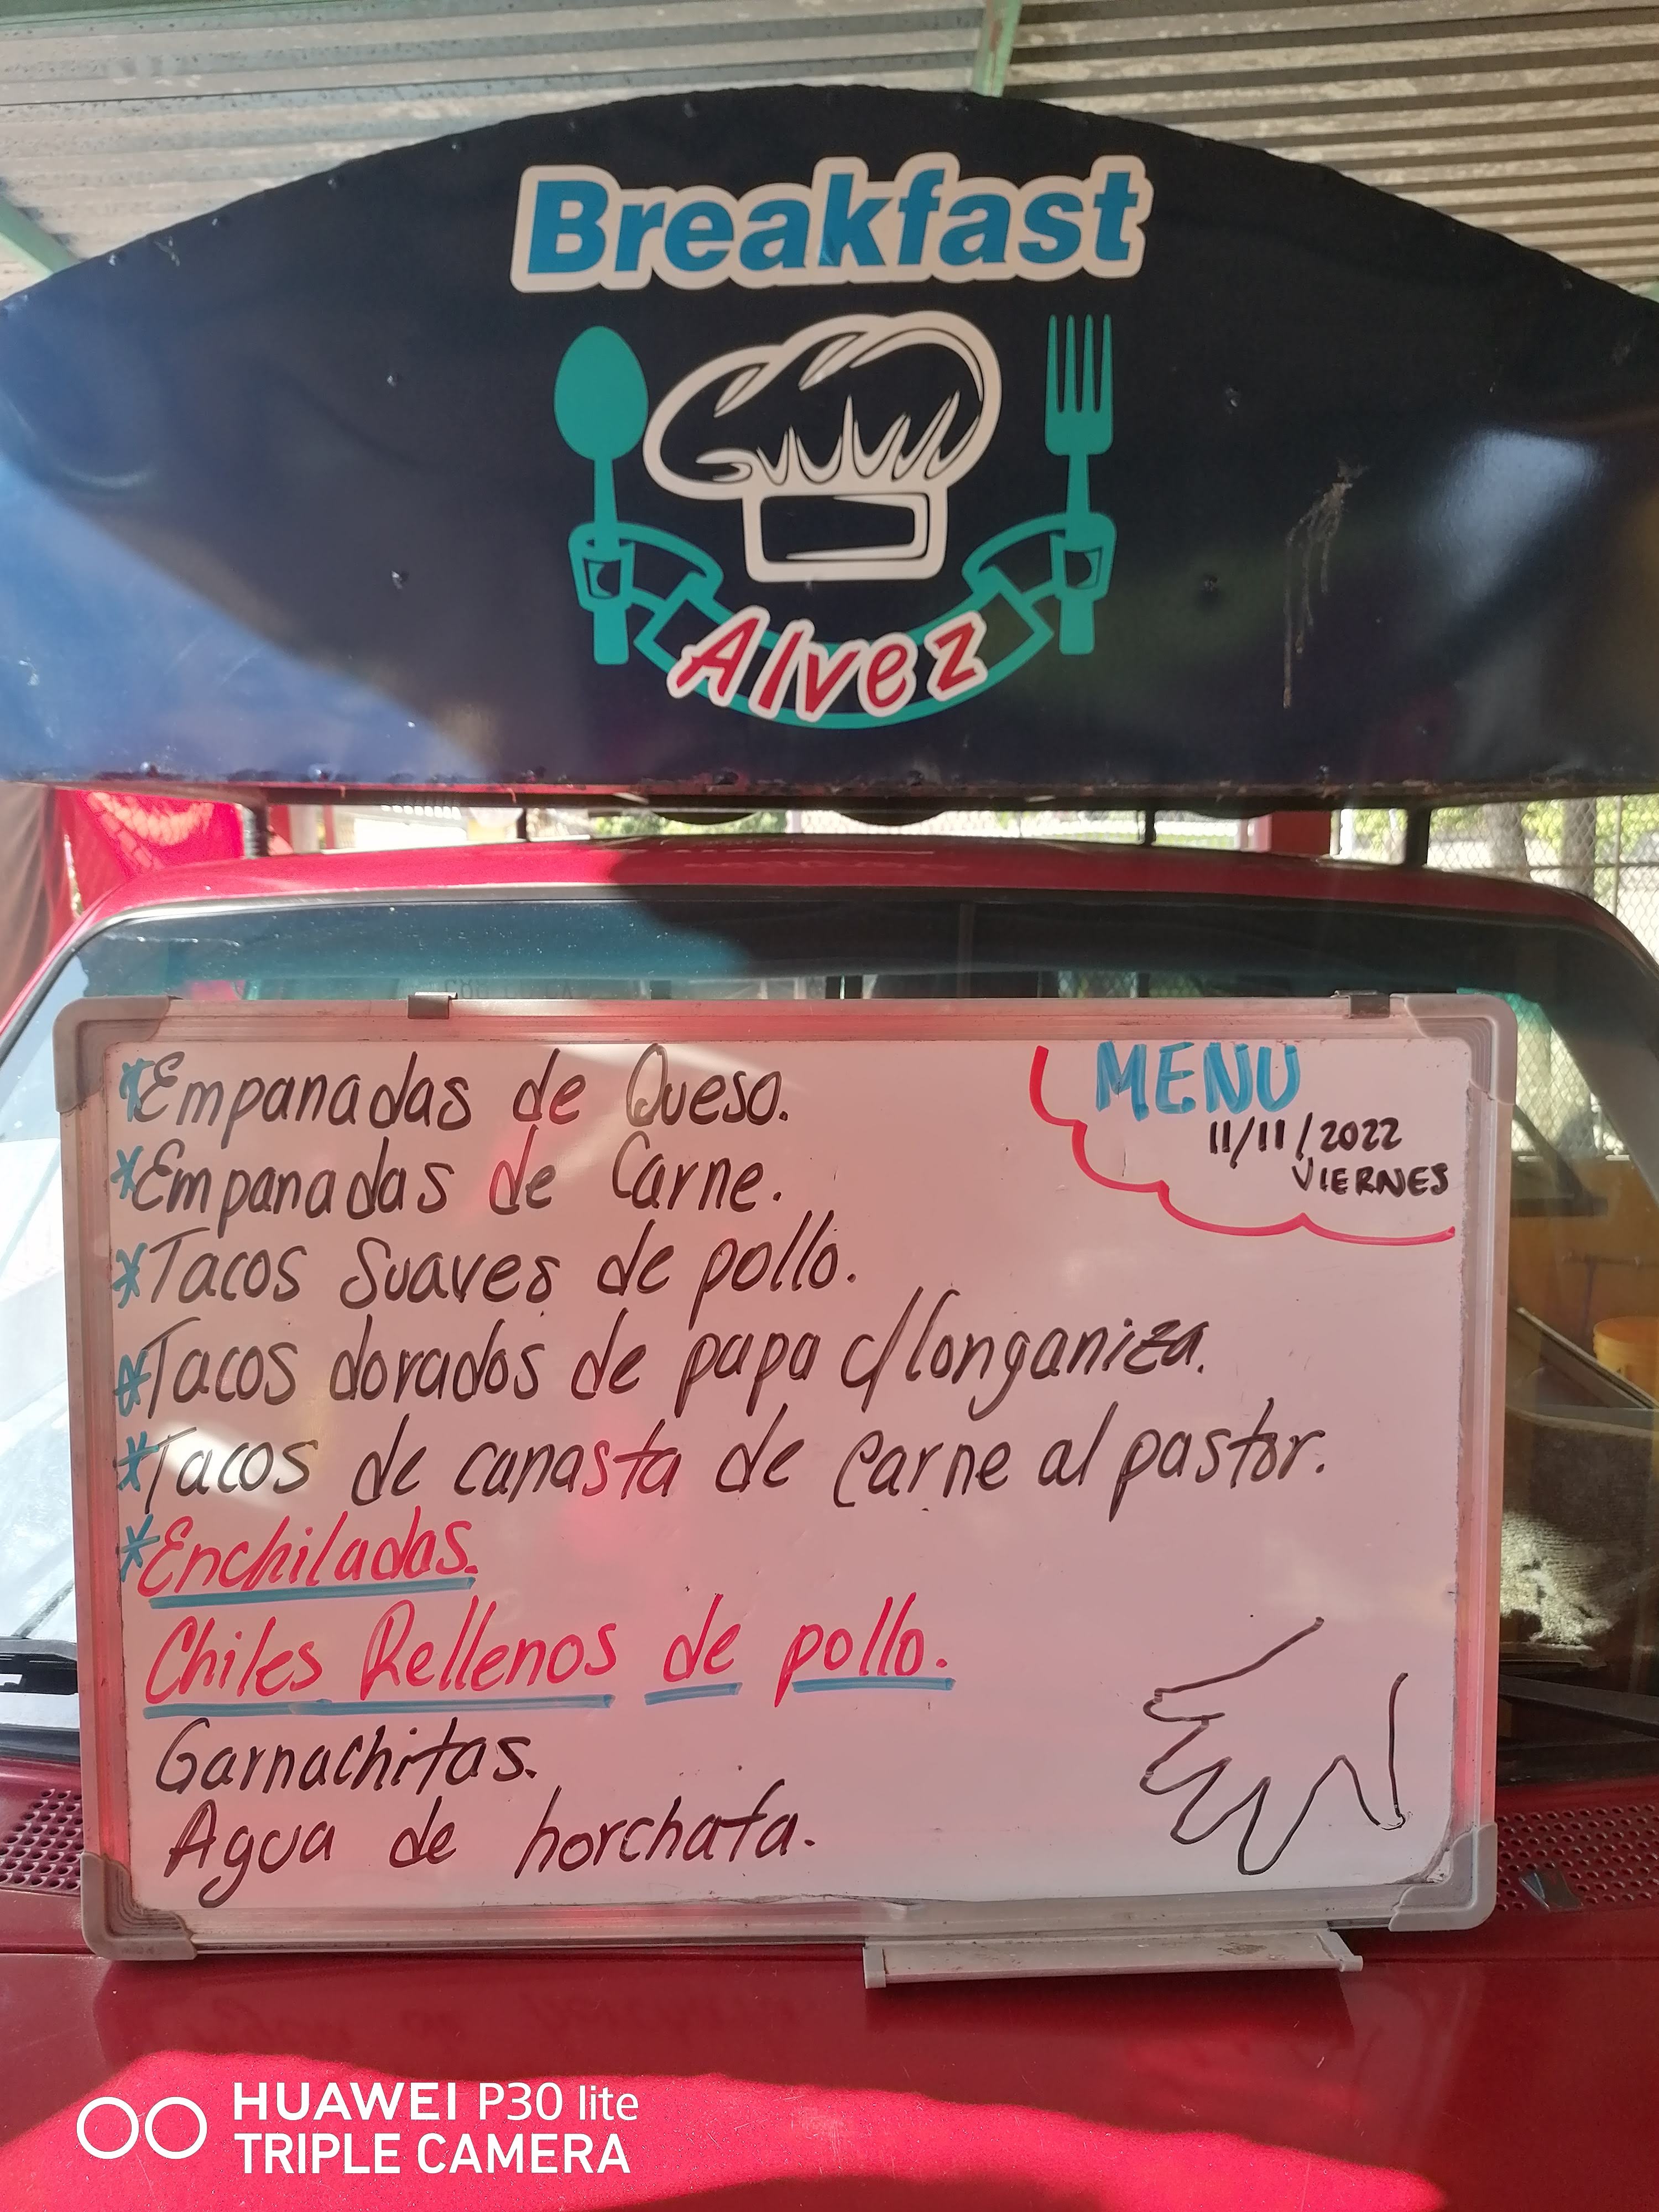 Breakfast
Alvez
MENU
11/11/2022
VIERNES
*Empanadas de Queso.
*Empanadas de Carne.
*Tacos Suaves de pollo.
*Tacos dorados de papa c/longaniza.
*Tacos de canasta de Carne al pastor.
*Enchiladas.
Chiles Rellenos de pollo.
Garnachitas.
Agua de horchata.
HUAWEI P30 lite
TRIPLE CAMERA